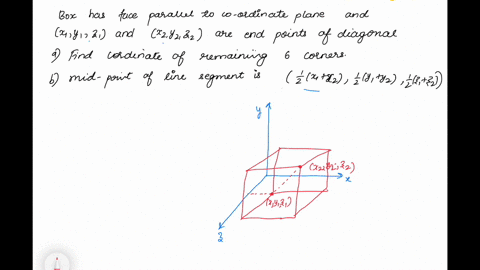 Box has face parallel to co-ordinate plane and
(x1,y1,z1) and (x2,y2,z2) are end points of diagonal
a) Find cordinate of remaining 6 corners.
b) mid-point of line segment is (1/2(x1+x2), 1/2(y1+y2), 1/2(z1+z2))
y
(x2,y2,z2)
x
(x1,y1,z1)
z